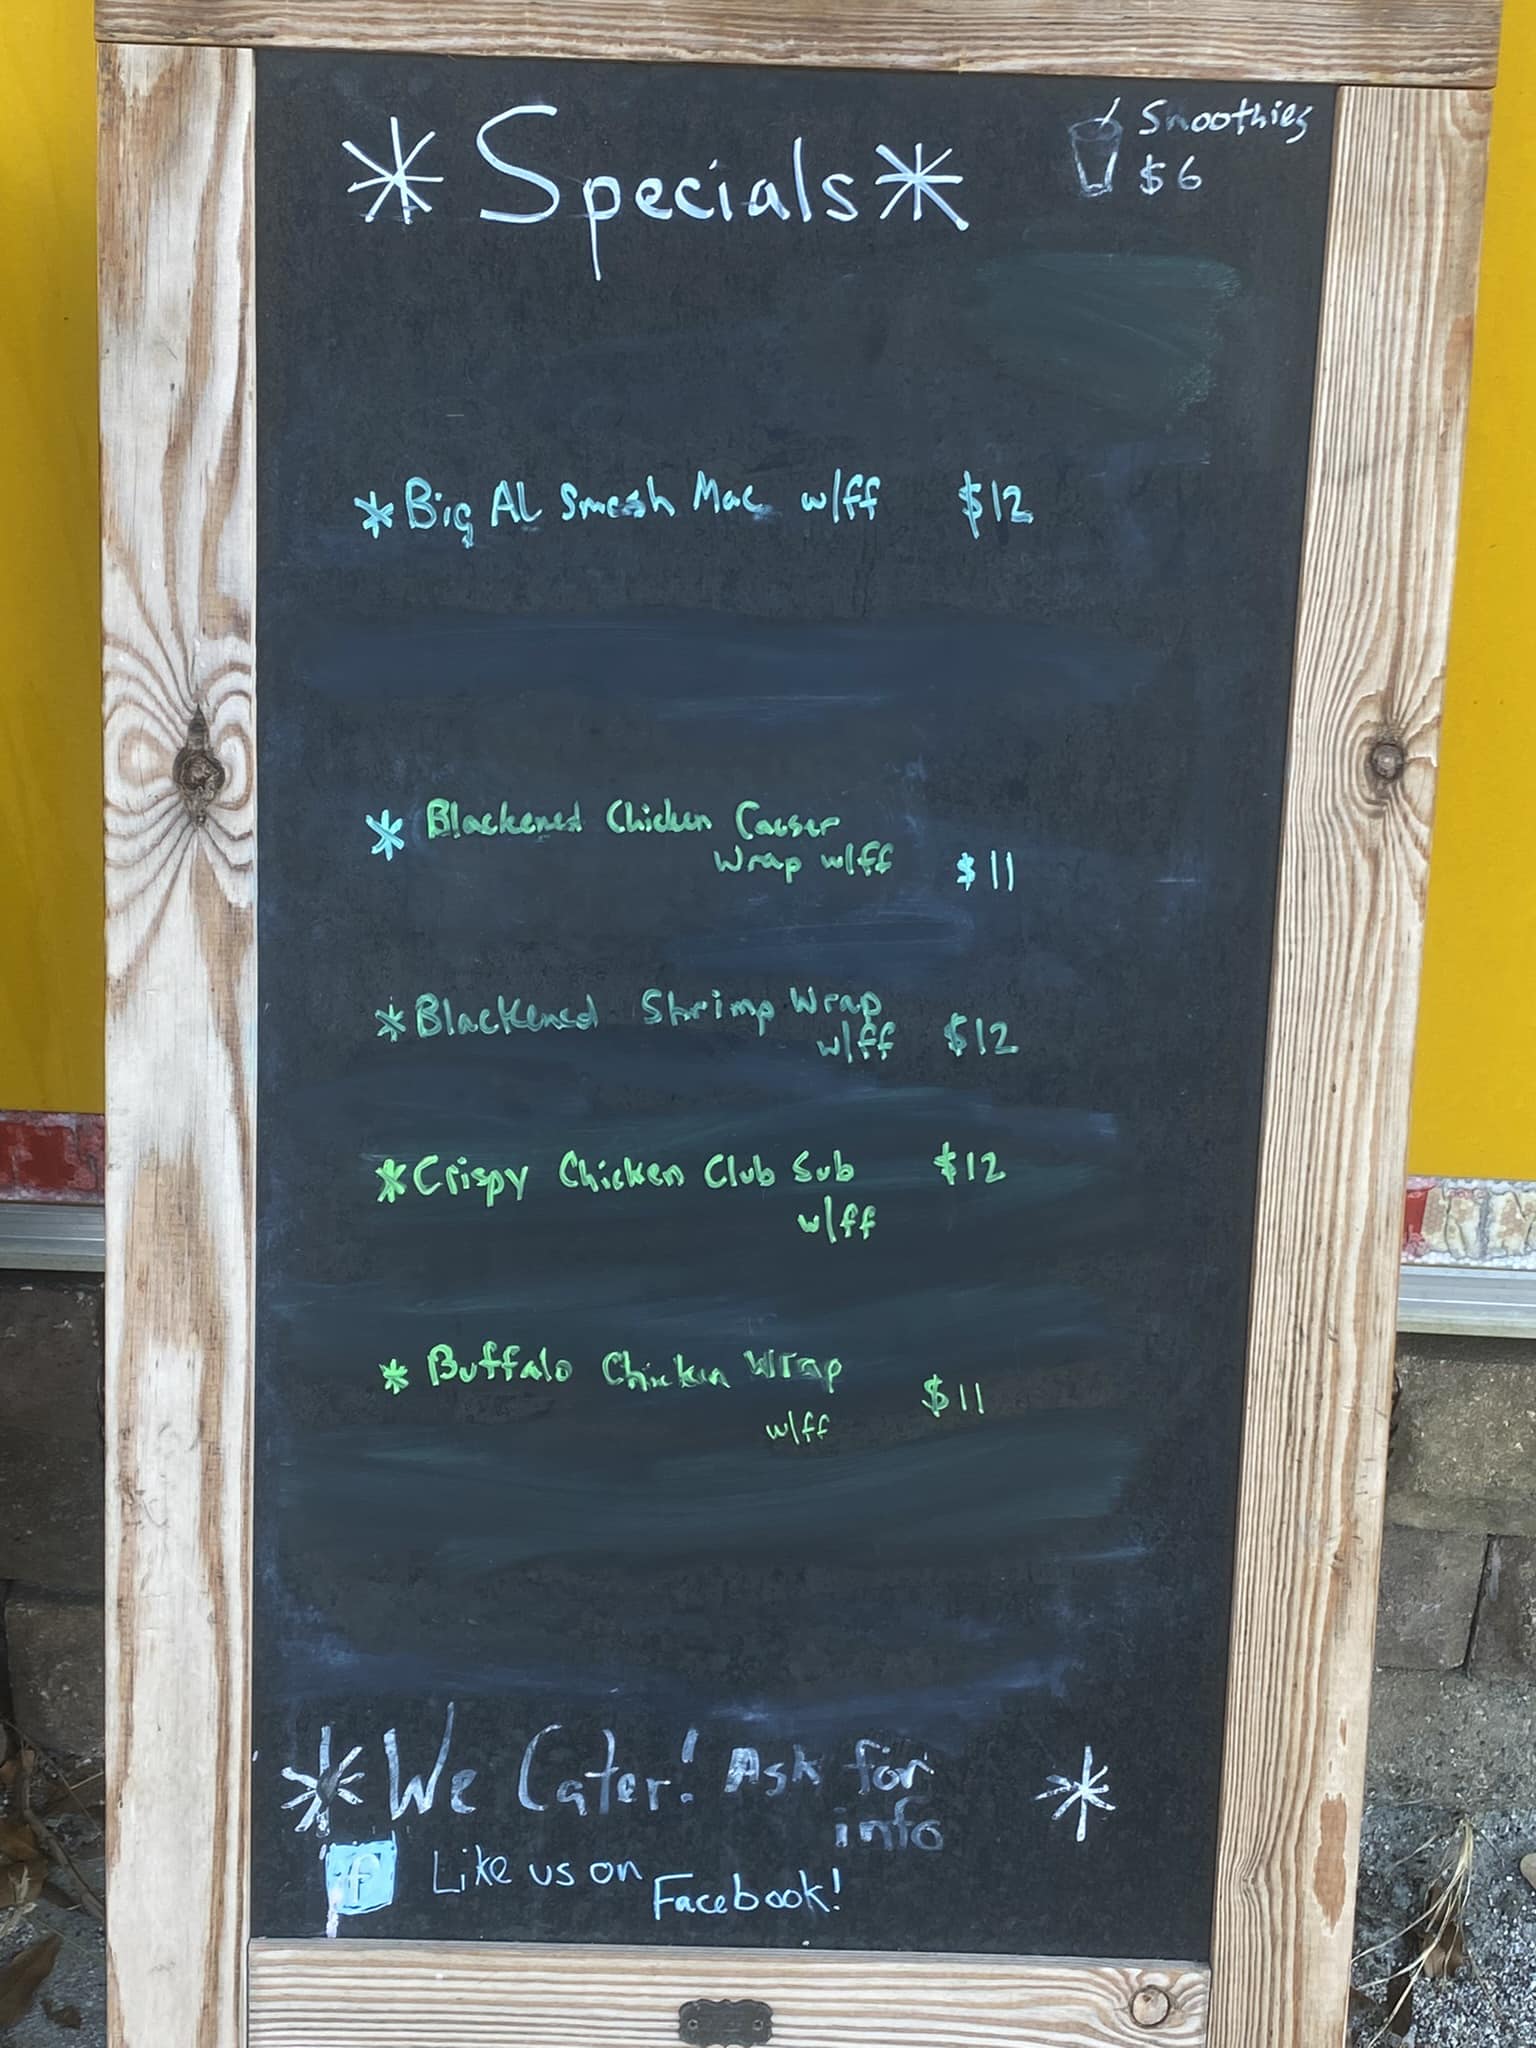 *Specials*
Smoothies
$6
*Big AL Smash Mac w/ff $12
* Blackened Chicken Caeser
Wrap w/ff $11
*Blackened Shrimp Wrap
w/ff $12
*Crispy Chicken Club Sub $12
w/ff
* Buffalo Chicken Wrap
w/ff $11
*We Cater! Ask for *
info
f Like us on
Facebook!